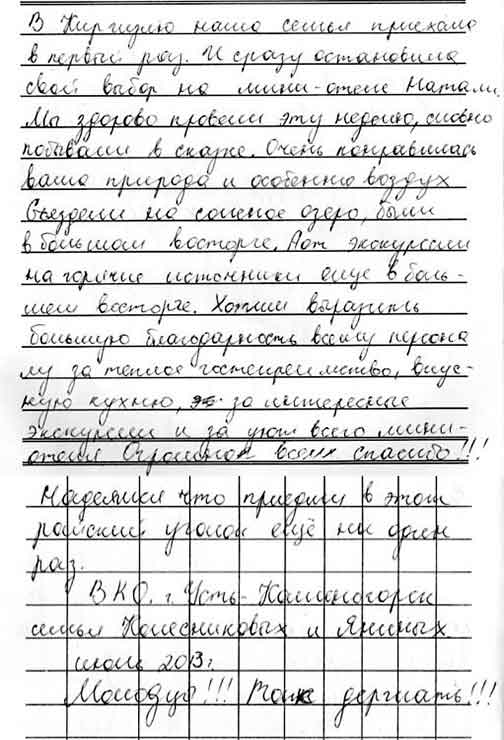 В Киргизию наша семья приехала
в первый раз. И сразу остановила
свой выбор на мини-отеле Натали.
Мы здорово провели эту неделю, словно
побывали в сказке. Очень понравилась
ваша природа и особенно воздух
Съездели на соленое озеро, были
в большом восторге. А от экскурсии
на горячие источники еще в боль-
шем восторге. Хотим выразить
большую благодарность всему персона
лу за теплое гостеприимство, вкус-
ную кухню, за интересные
экскурсии и за уют всего мини-
отеля Огромное всем спасибо!!!
Надеемся что приедим в этот
райский уголок ещё ни один
раз.
ВКО. г. Усть-Каменогорск
семья Колесниковых и Яниных
2013г.
Молодцы!!! Так держать!!!